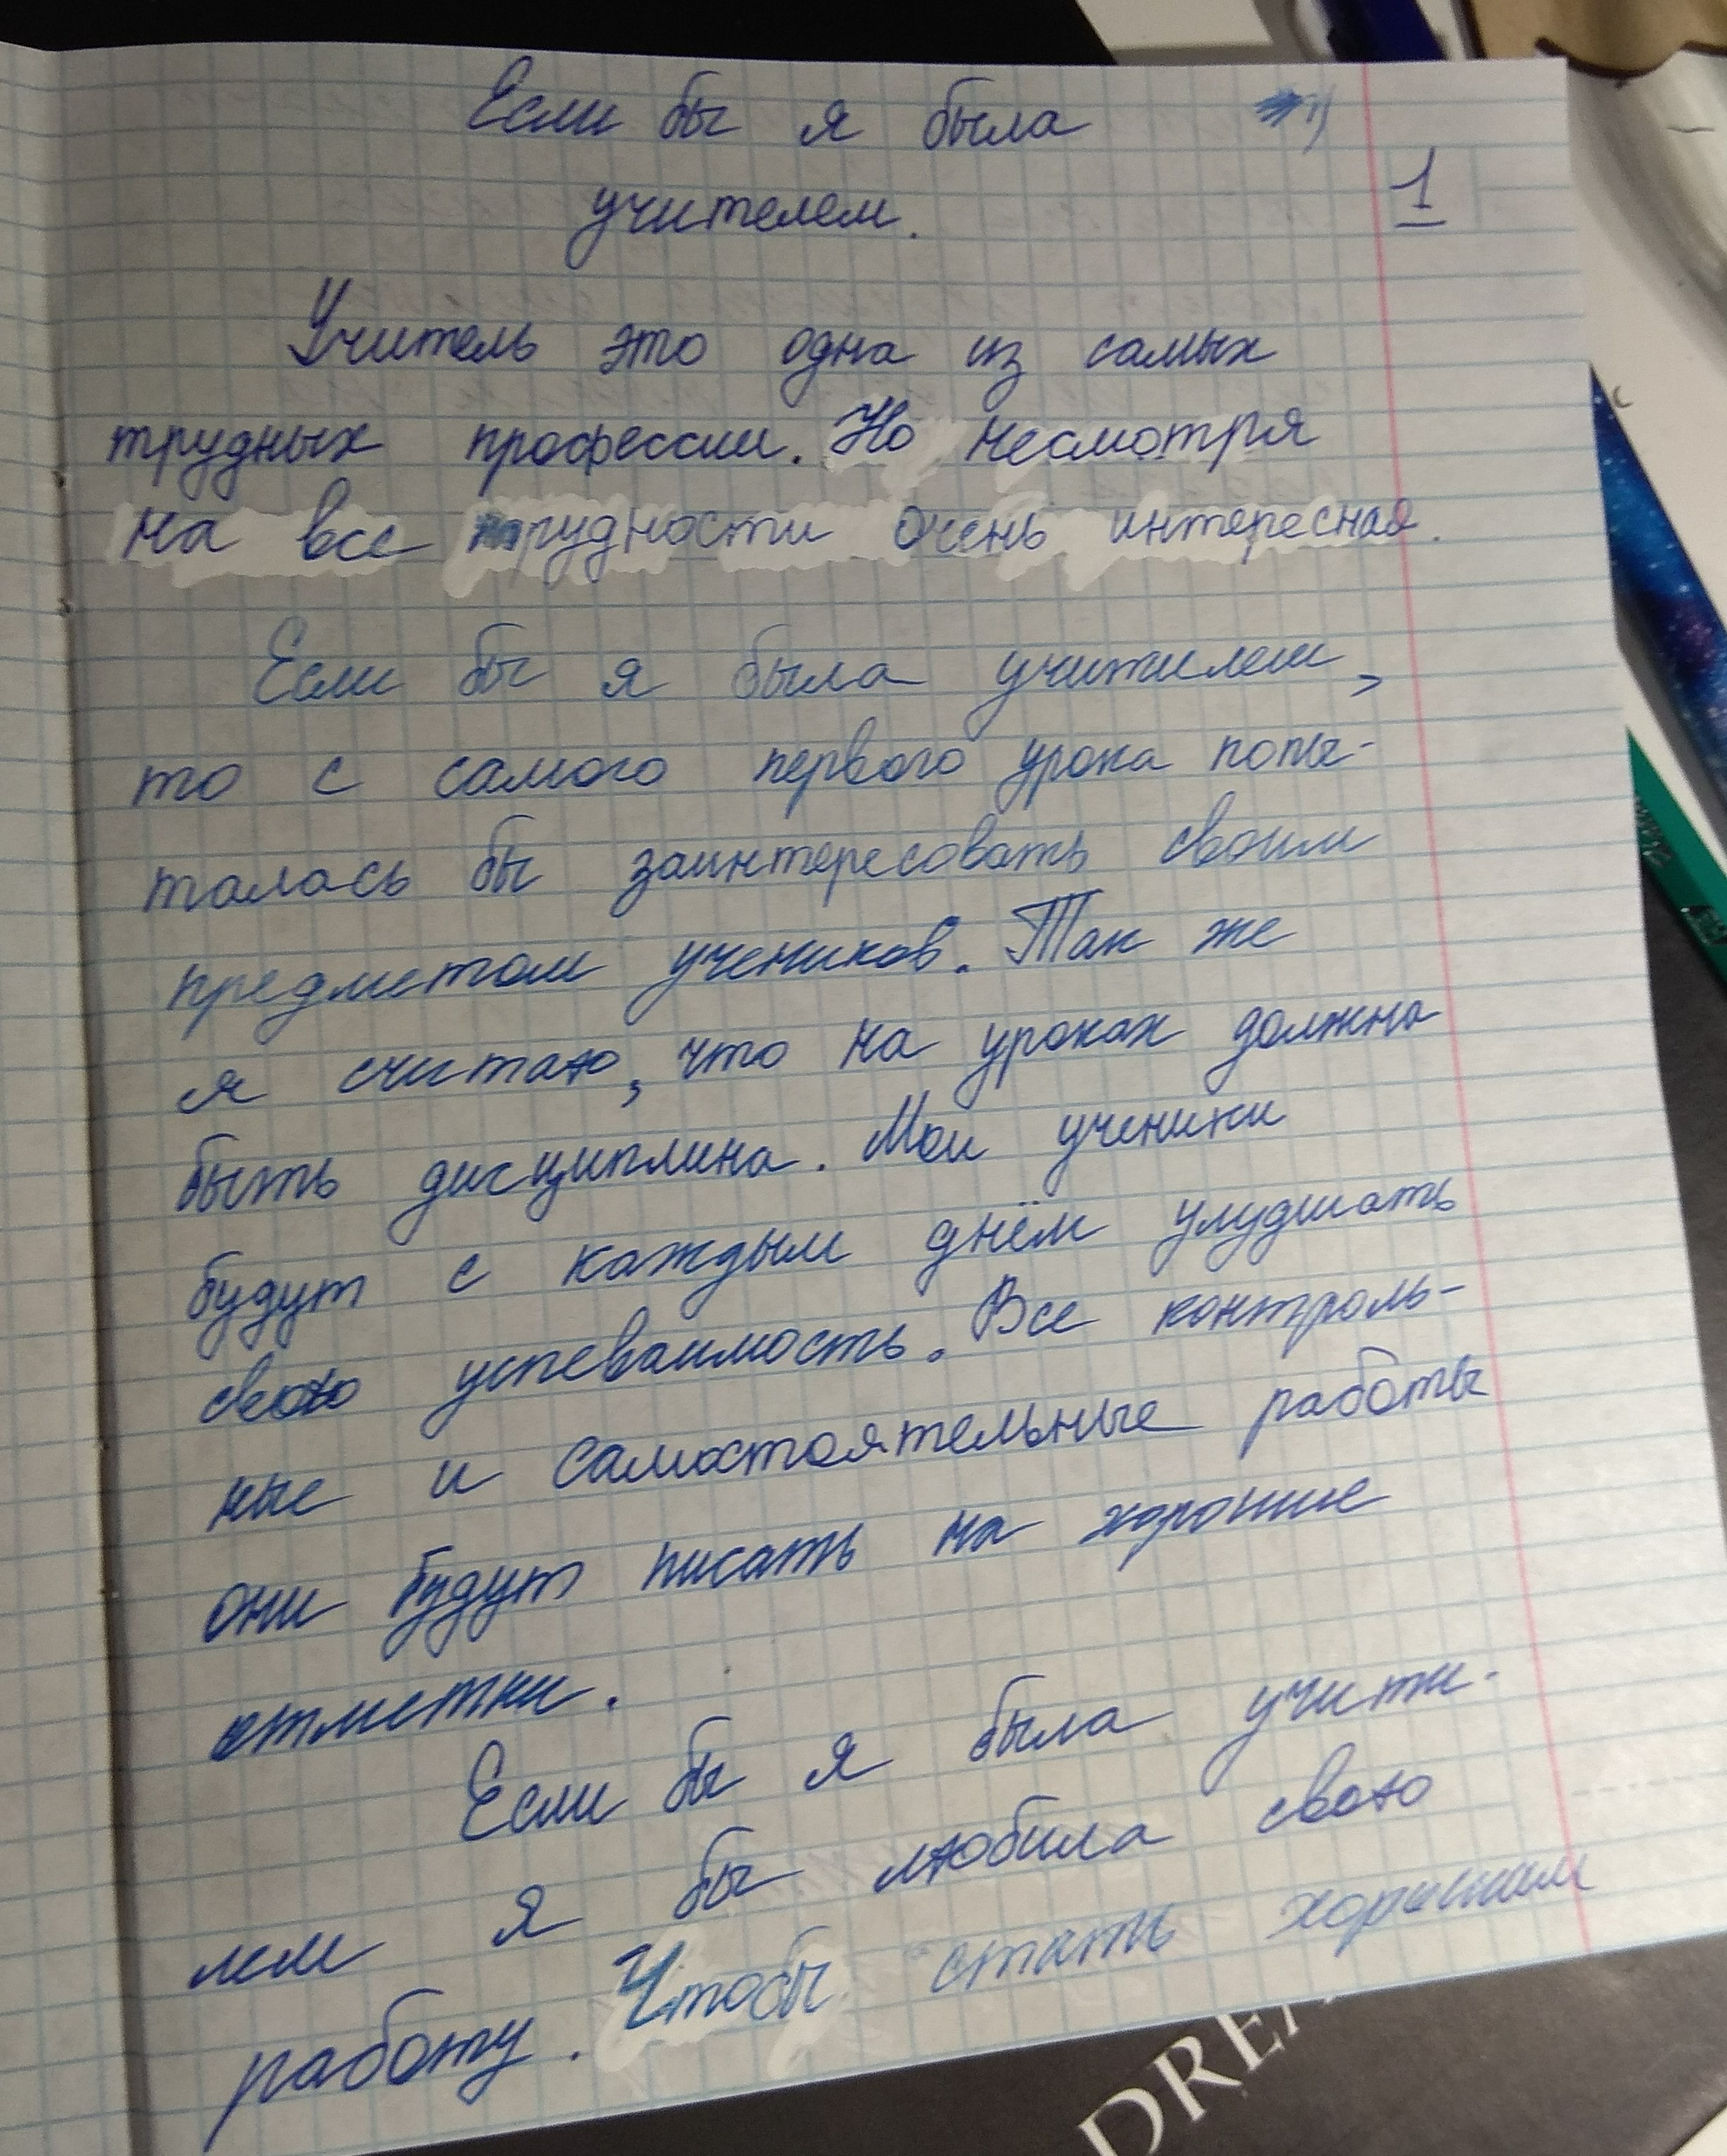 Если бы я была
1
учителем.
Учитель это одна из самых
трудных профессии. Но несмотря
на все трудности очень интересная.
Если бы я была учитилем,
то с самого первого урока попы-
талась бы заинтересовать своим
предметом учеников. Так же
я считаю, что на уроках должна
быть дисциплина. Мои ученики
будут с каждым днём улудшать
свою успеваимость. Все контроль-
ные и самостоятельные работы
они будут писать на хорошие
отметки.
Если бы я была учити-
лем я бы любила свою
работу. Чтобы стать хорошим
DREA